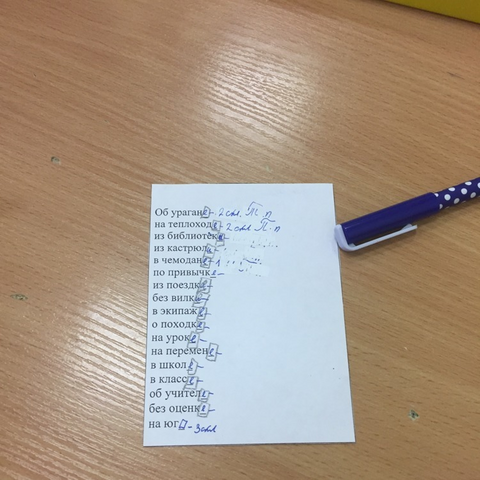 Об урагане - 2 скл. П.п
на теплоходе - 2 скл П.п
из библиотеки -
из кастрюл
в чемодане - 1
по привычке -
из поездки -
без вилки -
в экипаже -
о походке -
на уроке -
на перемене -
в школе -
в классе -
об учителе -
без оценки -
на юг - 3 скл